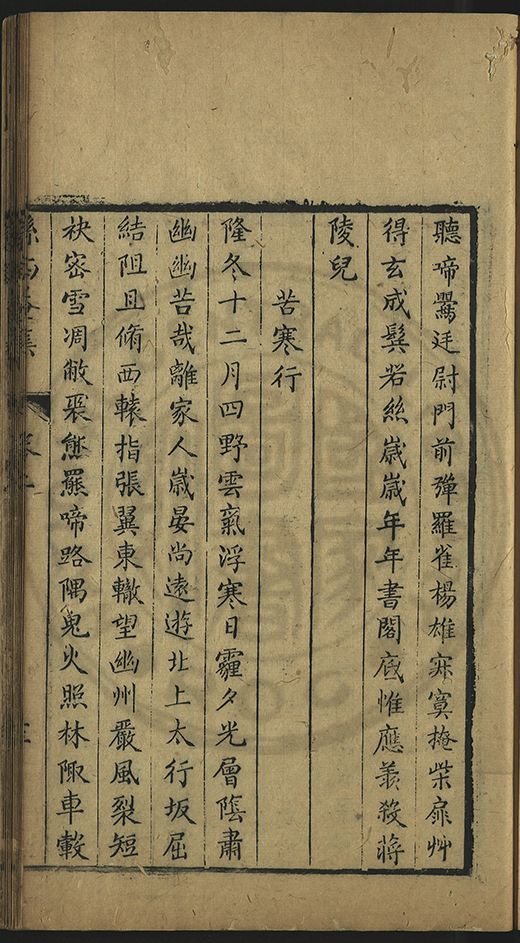 聽啼鶚廷尉門前彈羅雀楊雄寂寞掩柴扉艸
得玄成鬂若絲歲歲年年書閣底惟應羨殺蔣
陵兒
苦寒行
隆冬十二月四野雲氣浮寒日霾夕光層陰肅
幽幽苦哉離家人歲晏尚遠遊北上太行坂屈
結阻且脩西轅指張翼東轍望幽州嚴風裂短
袂密雪凋敝裘熊羆啼路隅鬼火照林陬車轂